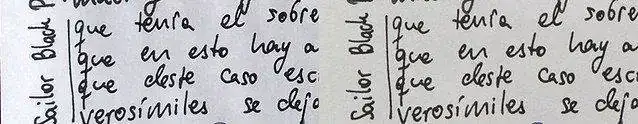 Sailor Black P
que tenía el sobre
que en esto hay a
que deste caso esc
verosímiles se deja
Sailor Black P
que tenía el sobre
que en esto hay a
que deste caso esc
verosímiles se deja